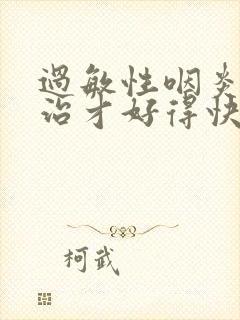 过敏性咽炎
治才好得快
柯武